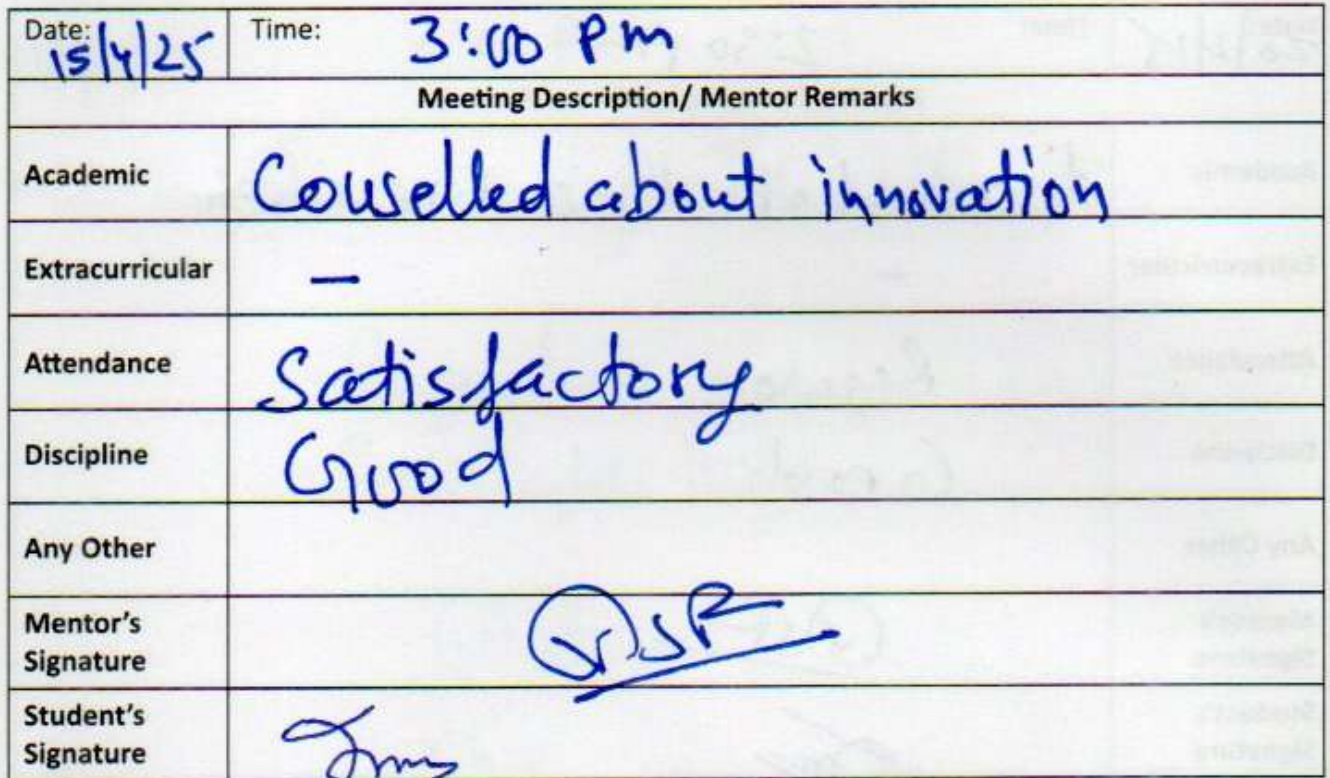 Date: 15/4/25 Time: 3:00 Pm
Meeting Description/ Mentor Remarks
Academic Couselled about innovation
Extracurricular –
Attendance Satisfactory
Discipline Good
Any Other
Mentor's
Signature
Student's
Signature